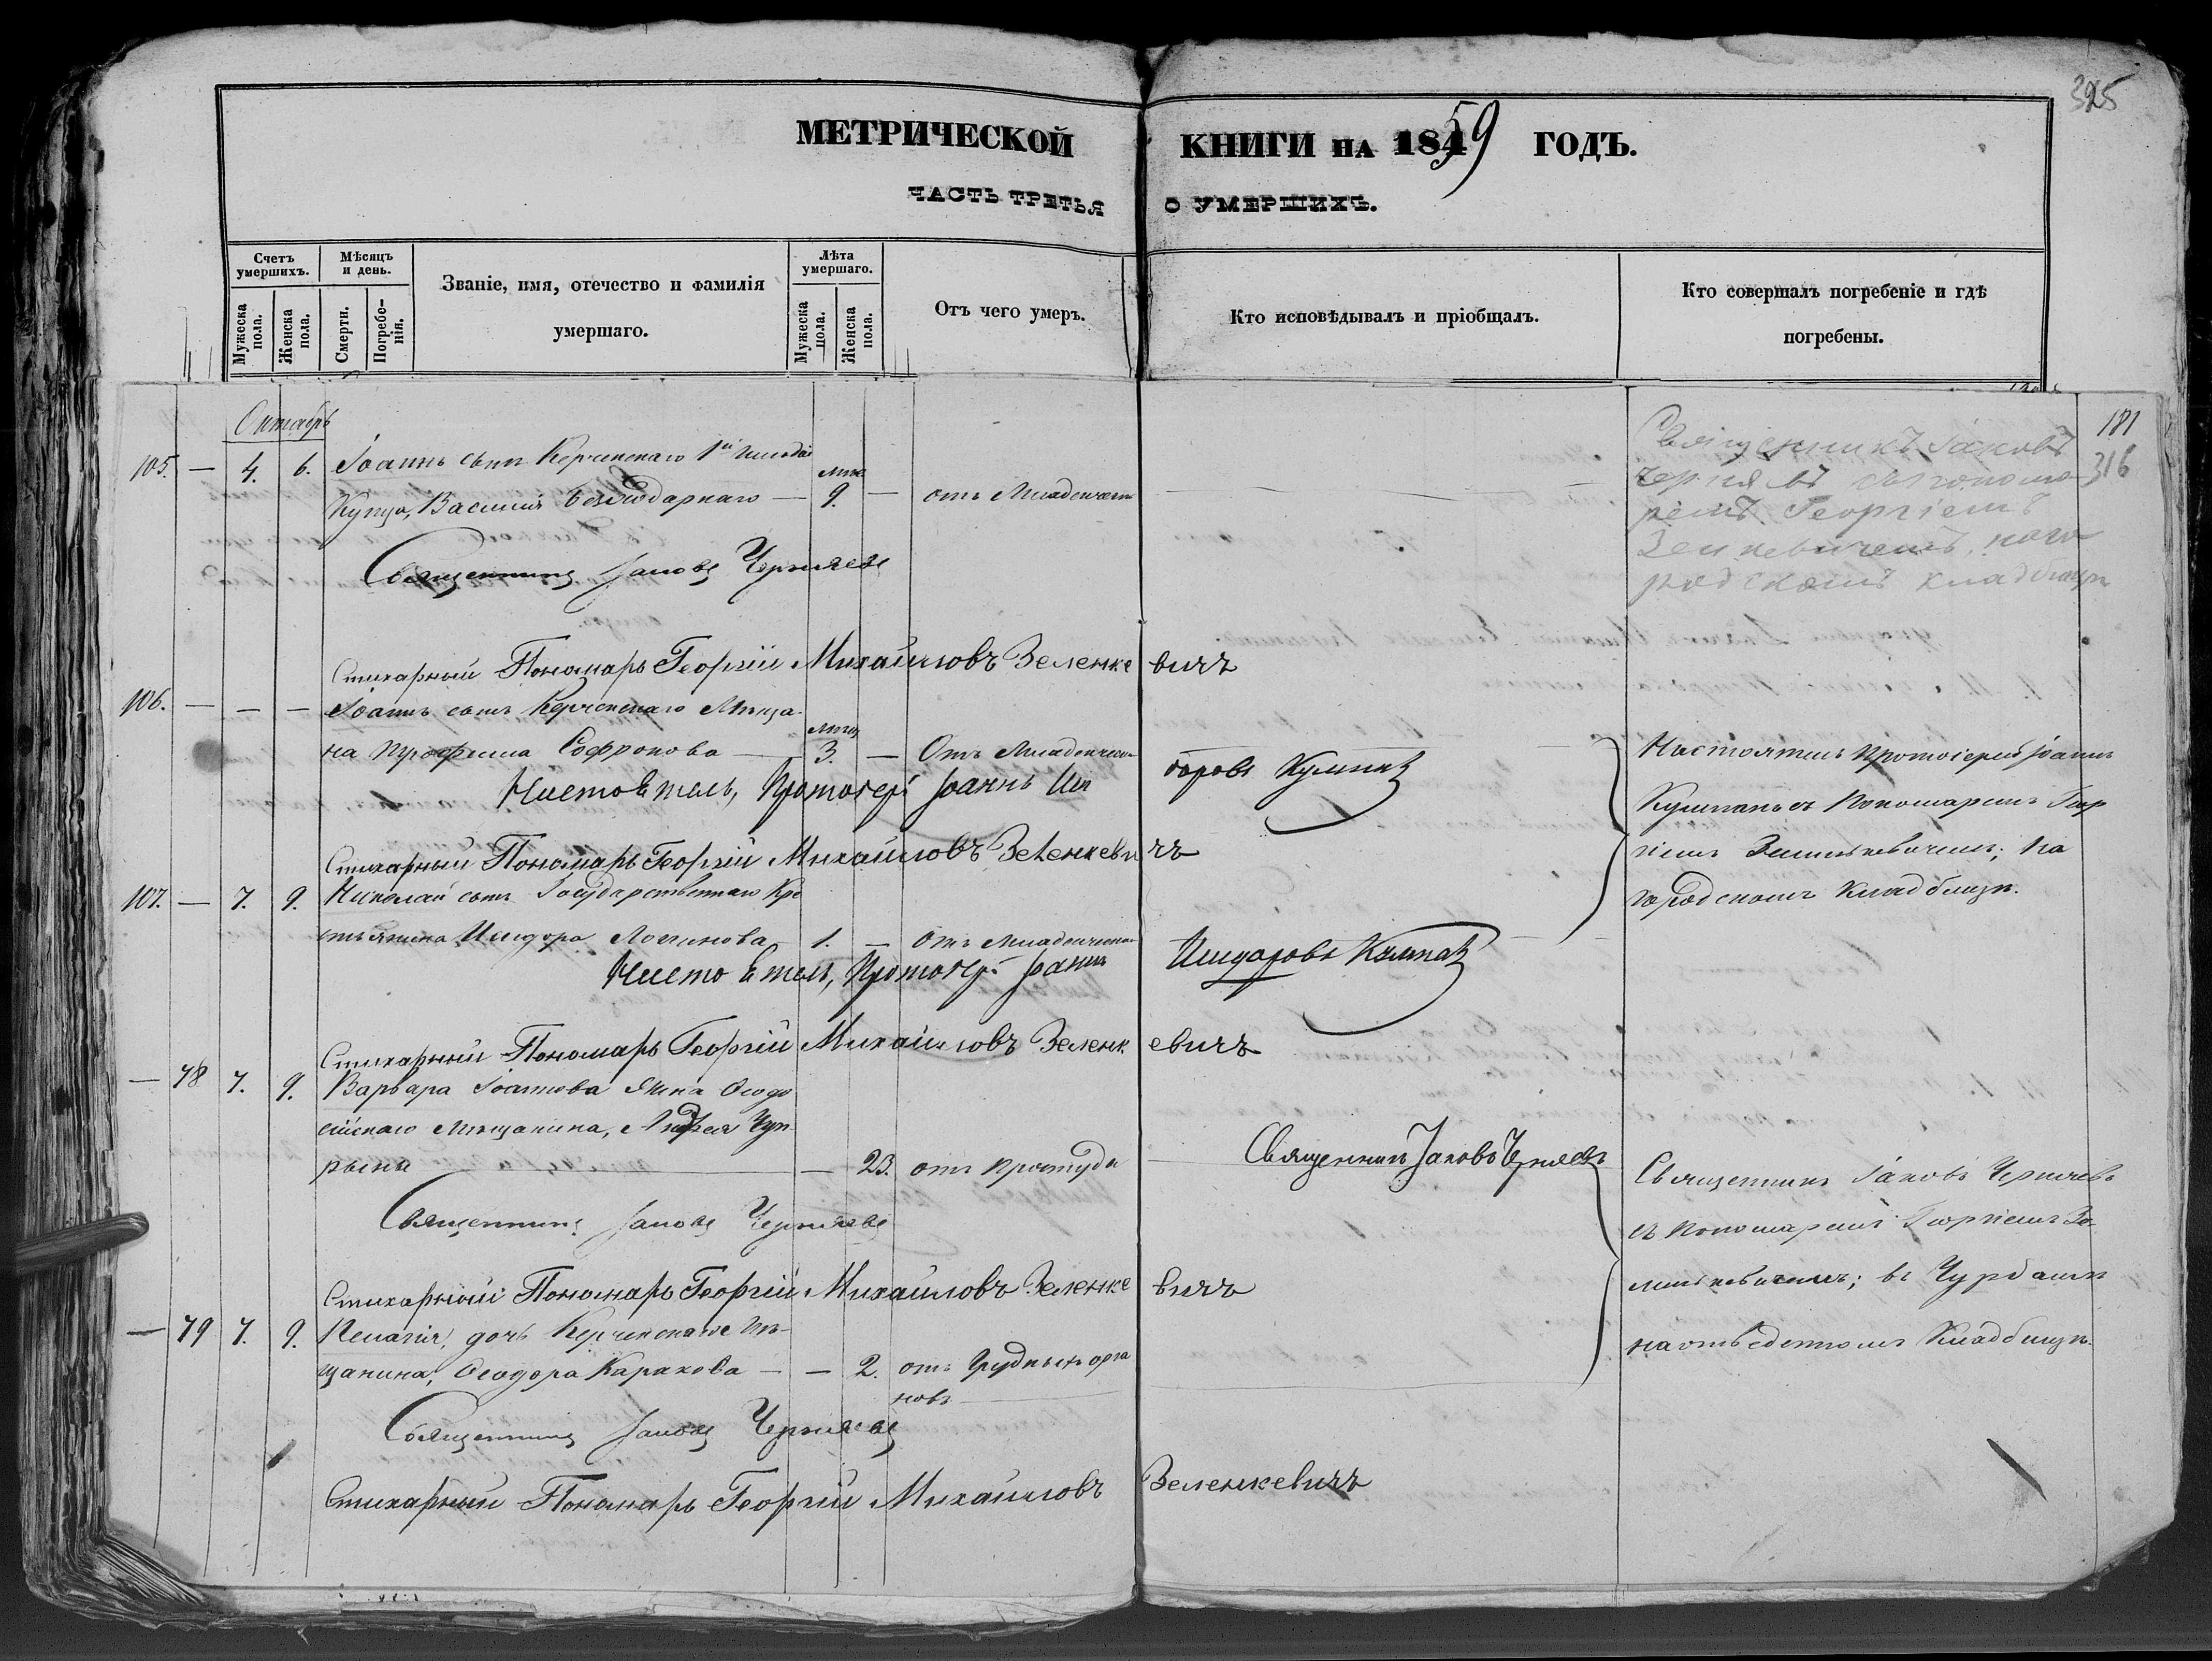 325
МЕТРИЧЕСКОЙ КНИГИ НА 1859 ГОДЪ.
ЧАСТЬ ТРЕТЬЯ О УМЕРШИХЪ.
Счетъ умершихъ.
Мужеска пола.
Женска пола.
Мѣсяцъ и день.
Смерти.
Погребенія.
Званіе, имя, отечество и фамилія
умершаго.
Лѣта умершаго.
Мужеска пола.
Женска пола.
Отъ чего умеръ.
Кто исповѣдывалъ и пріобщалъ.
Кто совершалъ погребеніе и гдѣ
погребены.
181
316
Октябрь
105. — 4. 6. Іоаннъ сынъ Керченскаго 1й Гильдіи
Купца, Василія Безбодарнаго — 9. — отъ Младенчес
Священникъ Іаковъ Черняевъ
Стихарный Пономарь Георгій Михайловъ Зеленкевичъ
Священникъ Іаковъ
Черняевъ съ пономаремъ Георгіемъ
Зенкевичемъ, на городскомъ кладбищѣ
106. — — — Іоаннъ сынъ Керченскаго Мѣща-
на Трофима Софронова — 3. — Отъ Младенчес
Настоятель, Протоіерей Іоаннъ Кумпанъ
Стихарный Пономарь Георгій Михайловъ Зеленкевичъ
107. — 7. 9. Николай сынъ Государственнаго Кре
стьянина Исидора Логинова — 1. — Отъ Младенческа
Настоятель, Протоіерей Іоаннъ Кумпанъ
Стихарный Пономарь Георгій Михайловъ Зеленкевичъ
Настоятель Протоіерей Іоаннъ
Кумпанъ съ Пономаремъ Геор
гіемъ Зеленкевичемъ; на
городскомъ Кладбищѣ.
— 78 7. 9. Варвара Іоаннова жена Ѳеодо
сійскаго Мѣщанина, Андрея Чуп
рына — 23. отъ простуды
Священникъ Іаковъ Черняевъ
Священникъ Іаковъ Черняевъ
Стихарный Пономарь Георгій Михайловъ Зеленкевичъ
— 79 7. 9. Пелагія, дочь Керченскаго Мѣ-
щанина, Ѳеодора Карахова — — 2. отъ Грудныхъ орга
новъ
Священникъ Іаковъ Черняевъ
Стихарный Пономарь Георгій Михайловъ Зеленкевичъ
Священникъ Іаковъ Черняевъ
съ Пономаремъ Георгіемъ Зе
ленкевичемъ; въ
на отведенномъ Кладбищѣ.